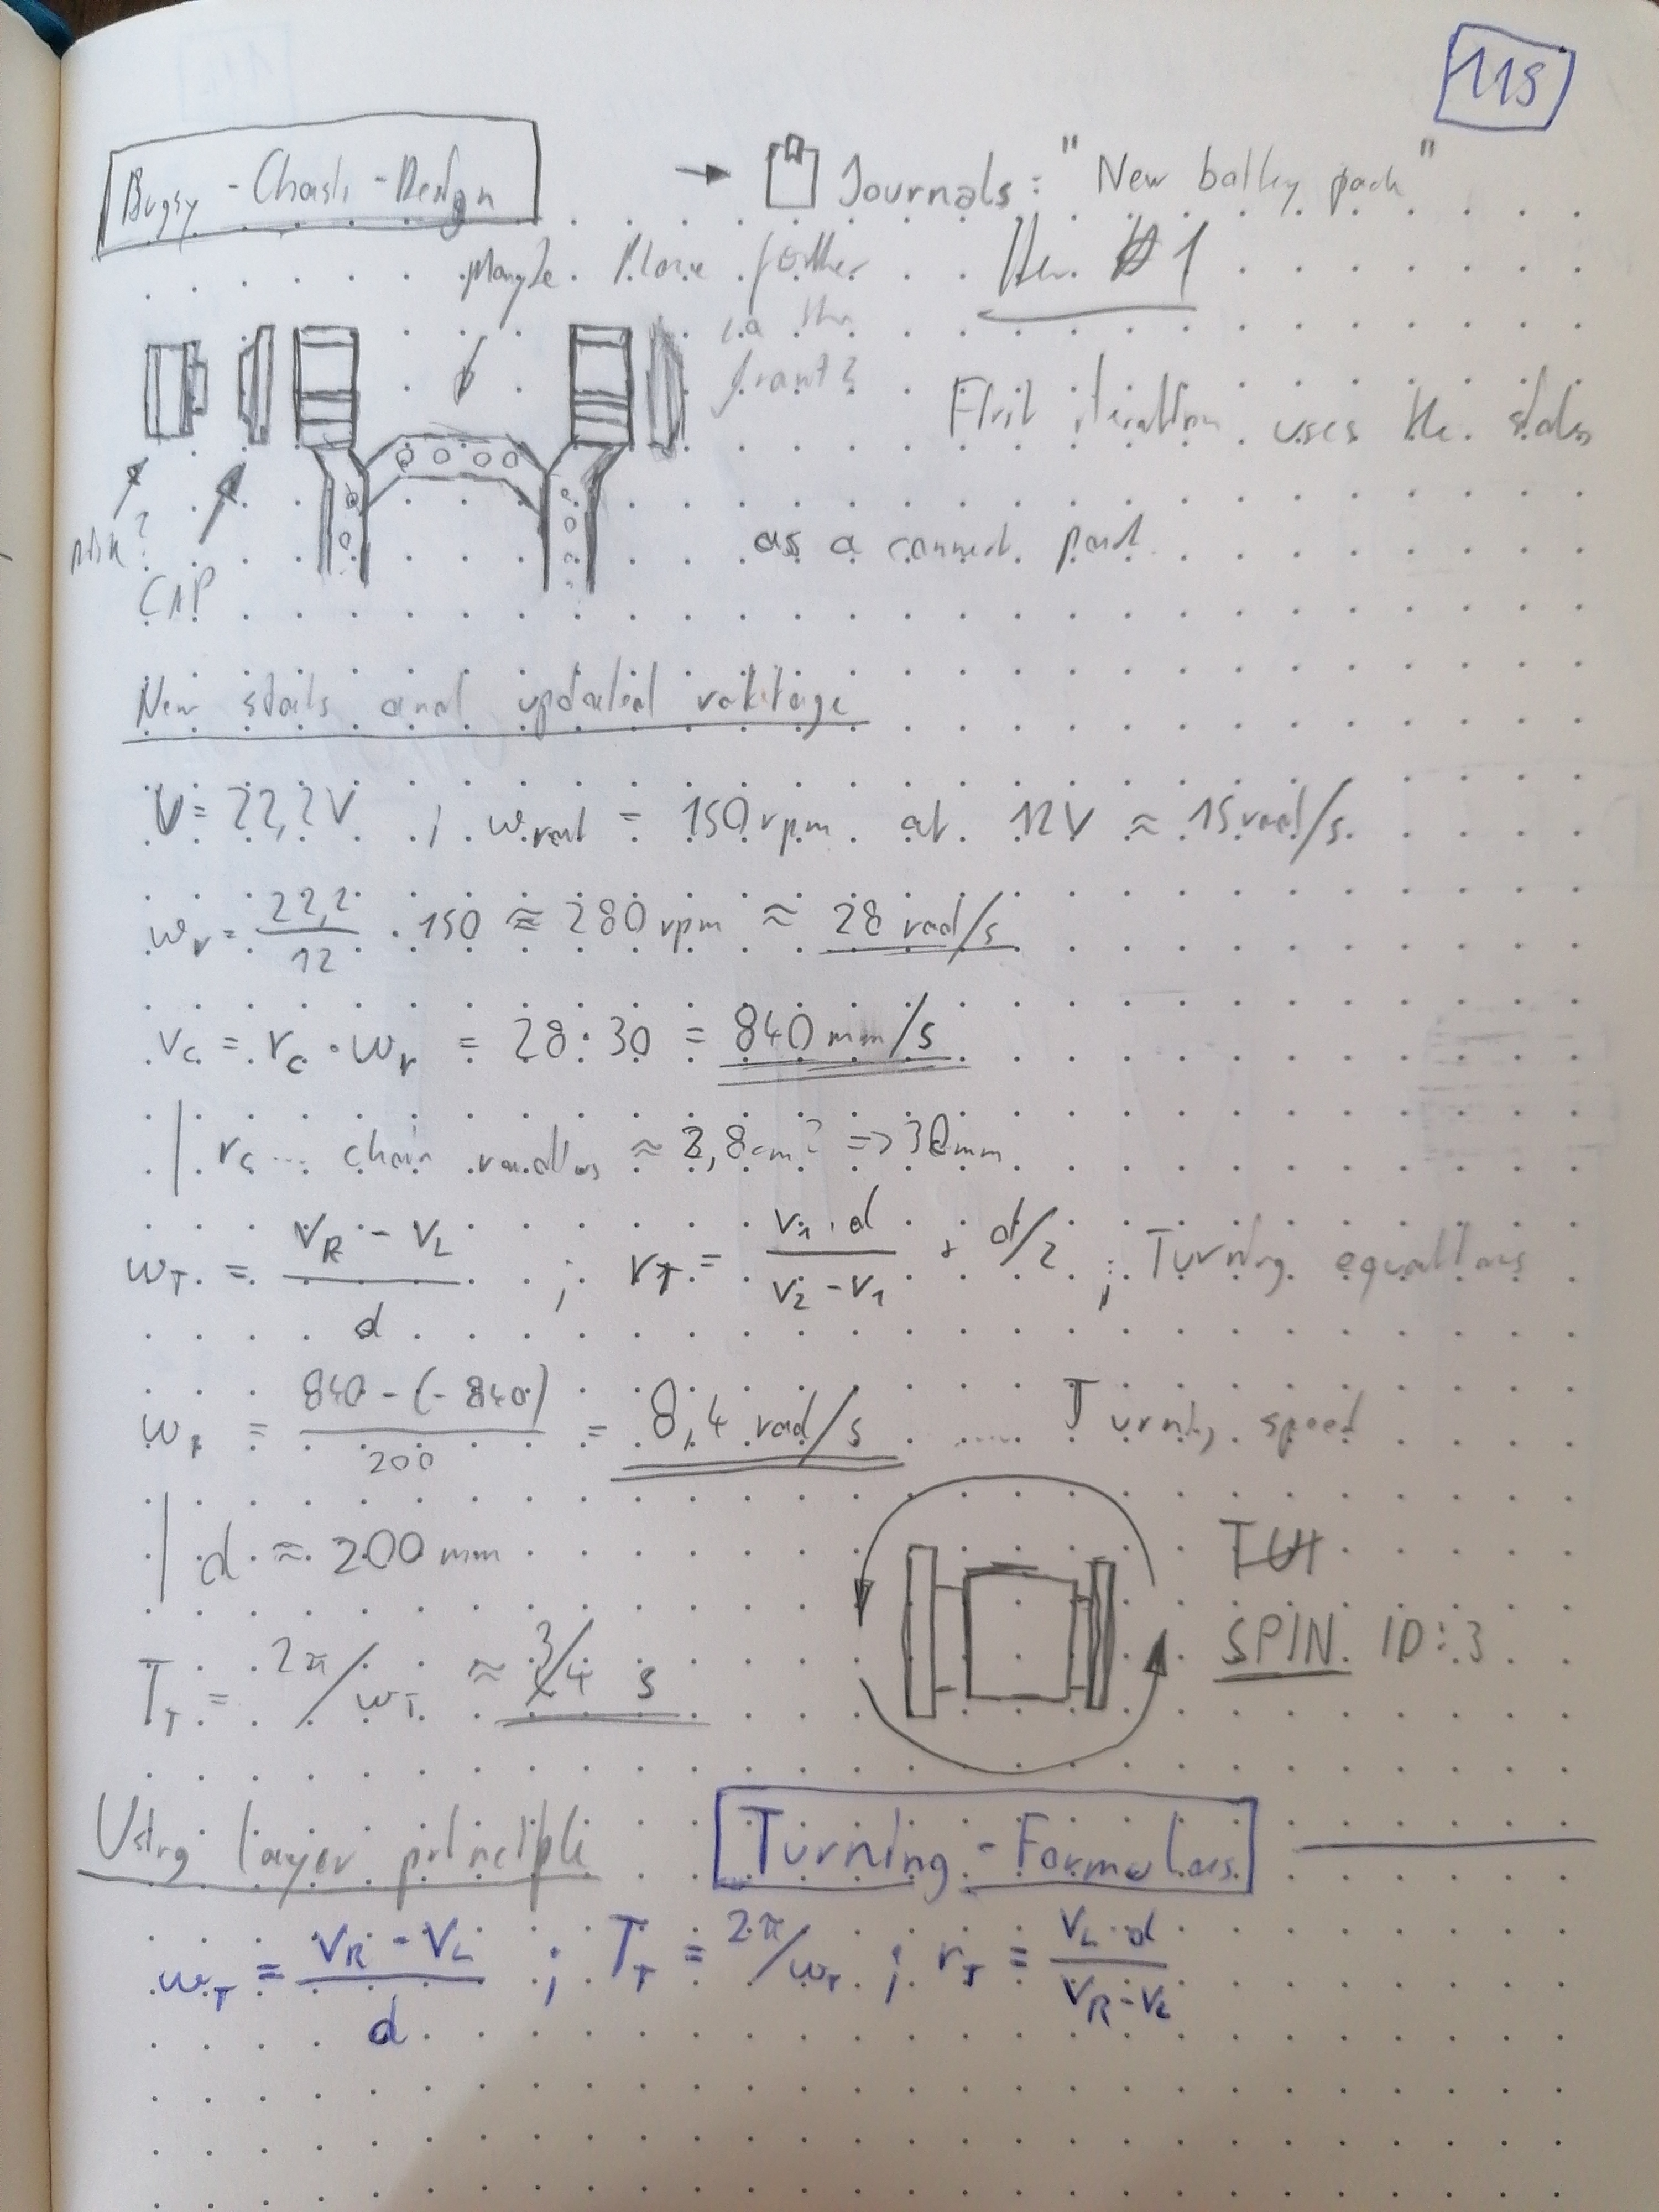 115
Bugsy - Chasis - Design
→ Journals: "New battery pack"
Maybe move further in the front?
Iter. #1
First iteration uses the sides
as a connect. part
CAP
New stats and updated voltage
U = 22,2V ; ω_rat = 150 rpm at 12V ≈ 15 rad/s
ω_r = 22,2/12 · 150 ≈ 280 rpm ≈ 28 rad/s
v_c = r_c · ω_r = 28 · 30 = 840 mm/s
| r_c ... chain radius ≈ 3,8cm? => 30mm
ω_T = (v_R - v_L)/d ; r_T = (v_1 · d)/(v_2 - v_1) + d/2 ; Turning equations
ω_T = (840 - (-840))/200 = 8,4 rad/s ..... Turning speed
| d ≈ 200 mm
T_T = 2π/ω_T ≈ 3/4 s
SPIN ID: 3
Using layer principle
Turning - Formulars
ω_T = (v_R - v_L)/d ; T_T = 2π/ω_T ; r_T = (v_L · d)/(v_R - v_L)